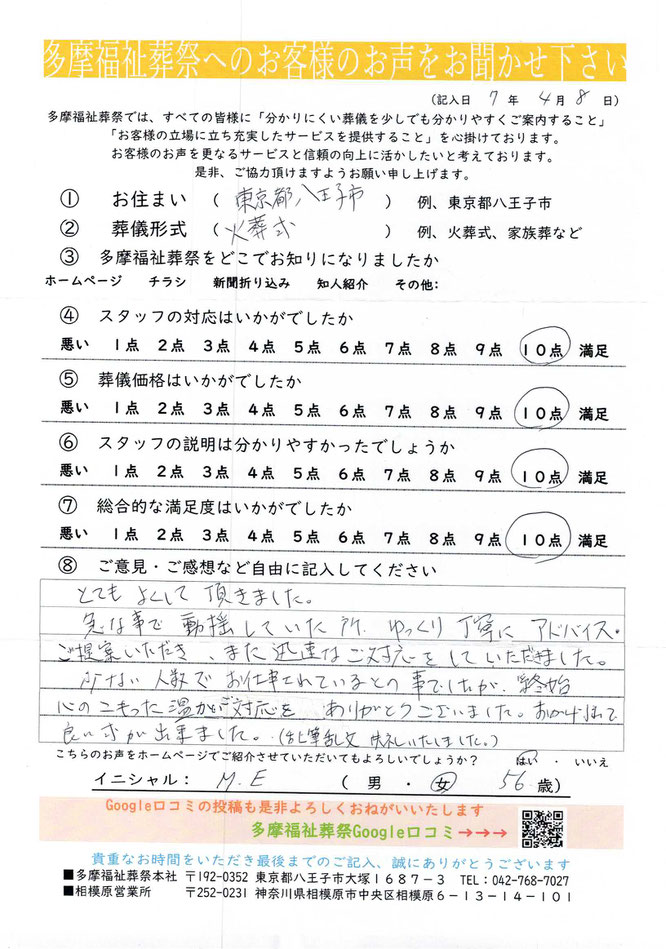 多摩福祉葬祭へのお客様のお声をお聞かせ下さい
（記入日 7 年 4 月 8 日）
多摩福祉葬祭では、すべての皆様に「分かりにくい葬儀を少しでも分かりやすくご案内すること」
「お客様の立場に立ち充実したサービスを提供すること」を心掛けております。
お客様のお声を更なるサービスと信頼の向上に活かしたいと考えております。
是非、ご協力頂けますようお願い申し上げます。
① お住まい （ 東京都八王子市 ） 例、東京都八王子市
② 葬儀形式 （ 火葬式 ） 例、火葬式、家族葬など
③ 多摩福祉葬祭をどこでお知りになりましたか
ホームページ チラシ 新聞折り込み 知人紹介 その他:
④ スタッフの対応はいかがでしたか
悪い 1点 2点 3点 4点 5点 6点 7点 8点 9点 10点 満足
⑤ 葬儀価格はいかがでしたか
悪い 1点 2点 3点 4点 5点 6点 7点 8点 9点 10点 満足
⑥ スタッフの説明は分かりやすかったでしょうか
悪い 1点 2点 3点 4点 5点 6点 7点 8点 9点 10点 満足
⑦ 総合的な満足度はいかがでしたか
悪い 1点 2点 3点 4点 5点 6点 7点 8点 9点 10点 満足
⑧ ご意見・ご感想など自由に記入してください
とてもよくして頂きました。
急な事で動揺していた所、ゆっくり丁寧にアドバイス・
ご提案いただき、また迅速なご対応をしていただきました。
少ない人数でお仕事されているとの事でしたが、終始
心のこもった温かいご対応を ありがとうございました。おかげ様で
良い式が出来ました。（乱筆乱文 失礼いたしました。）
こちらのお声をホームページでご紹介させていただいてもよろしいでしょうか？ はい ・ いいえ
イニシャル： M.E （ 男 ・ 女 56 歳）
Google口コミの投稿も是非よろしくおねがいいたします
多摩福祉葬祭Google口コミ→→→
貴重なお時間をいただき最後までのご記入、誠にありがとうございます
■多摩福祉葬祭本社 〒192-0352 東京都八王子市大塚1687－3 TEL：042-768-7027
■相模原営業所 〒252-0231 神奈川県相模原市中央区相模原6－13－14－101